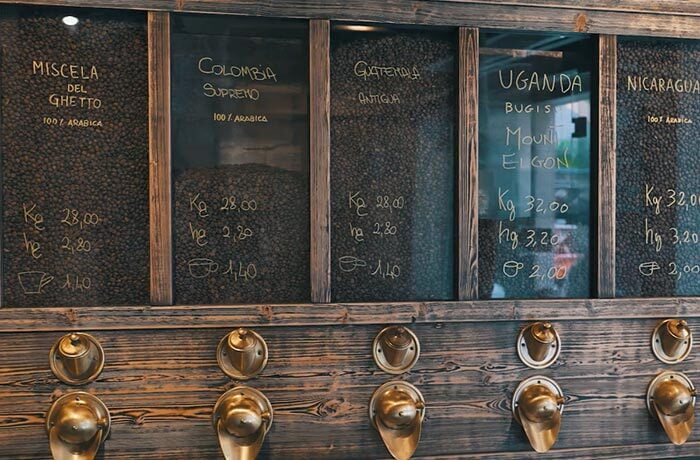 MISCELA
DEL
GHETTO
100% ARABICA
Kg 28,00
hg 2,80
1,40
COLOMBIA
SUPREMO
100% ARABICA
Kg 28,00
hg 2,80
1,40
GUATEMALA
ANTIGUA
Kg 28,00
hg 2,80
1,40
UGANDA
BUGISU
MOUNT
ELGON
Kg 32,00
hg 3,20
2,00
NICARAGUA
100% ARABICA
Kg 32,00
hg 3,20
2,00